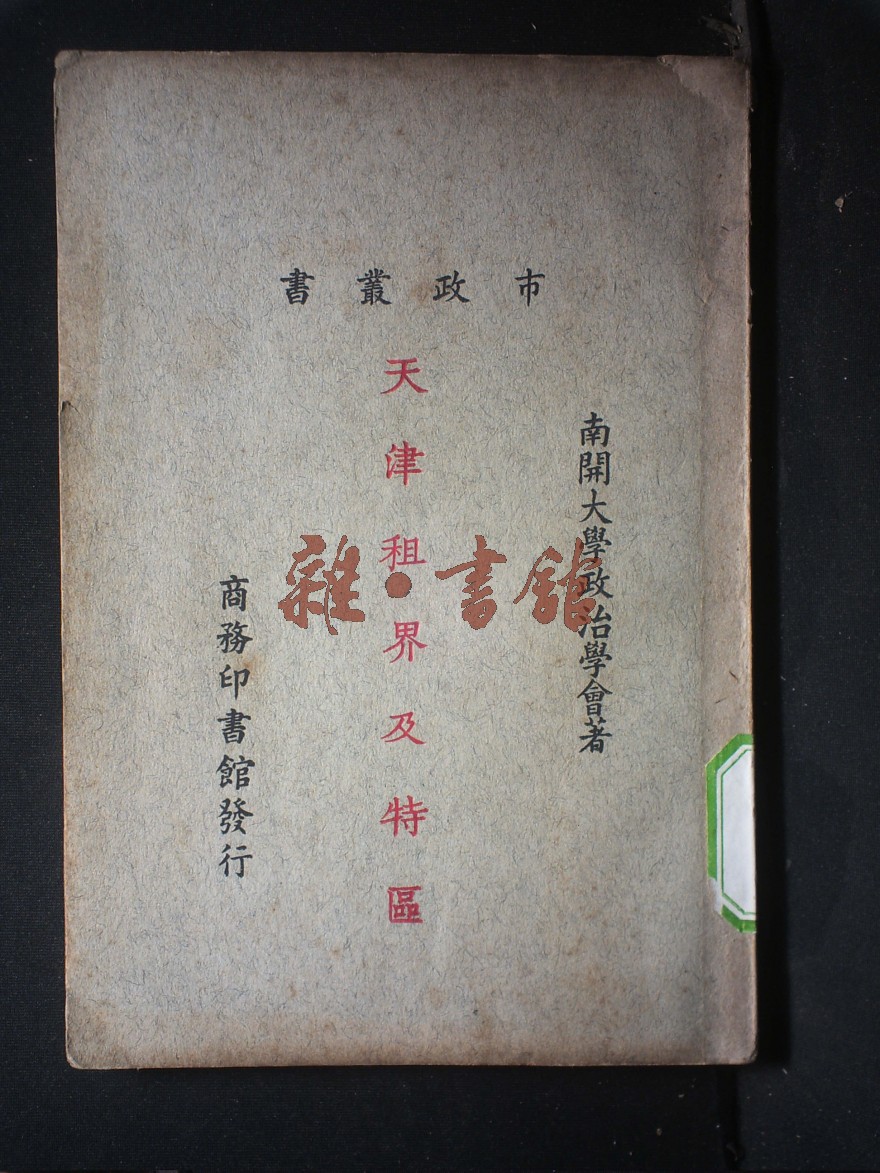 市政叢書
南開大學政治學會著
天津租界及特區
商務印書館發行
雜·書館